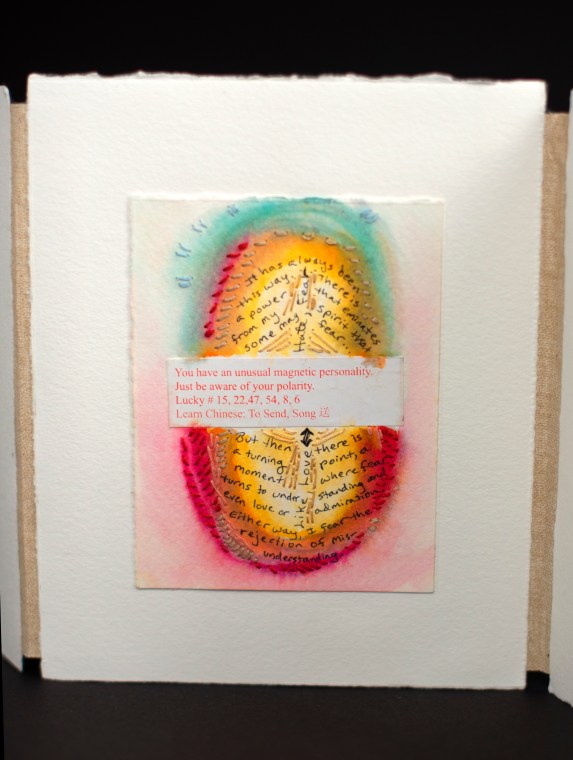 It has always been
this way... There is
a power that radiates
from my spirit that
some may fear...
Hate, Fear
You have an unusual magnetic personality.
Just be aware of your polarity.
Lucky # 15, 22,47, 54, 8, 6
Learn Chinese: To Send, Song 送
But then there is
a turning point, a
moment where fear
turns to under standing and
even love or admiration
either way, I fear the
rejection of mis-
understanding
Like Love